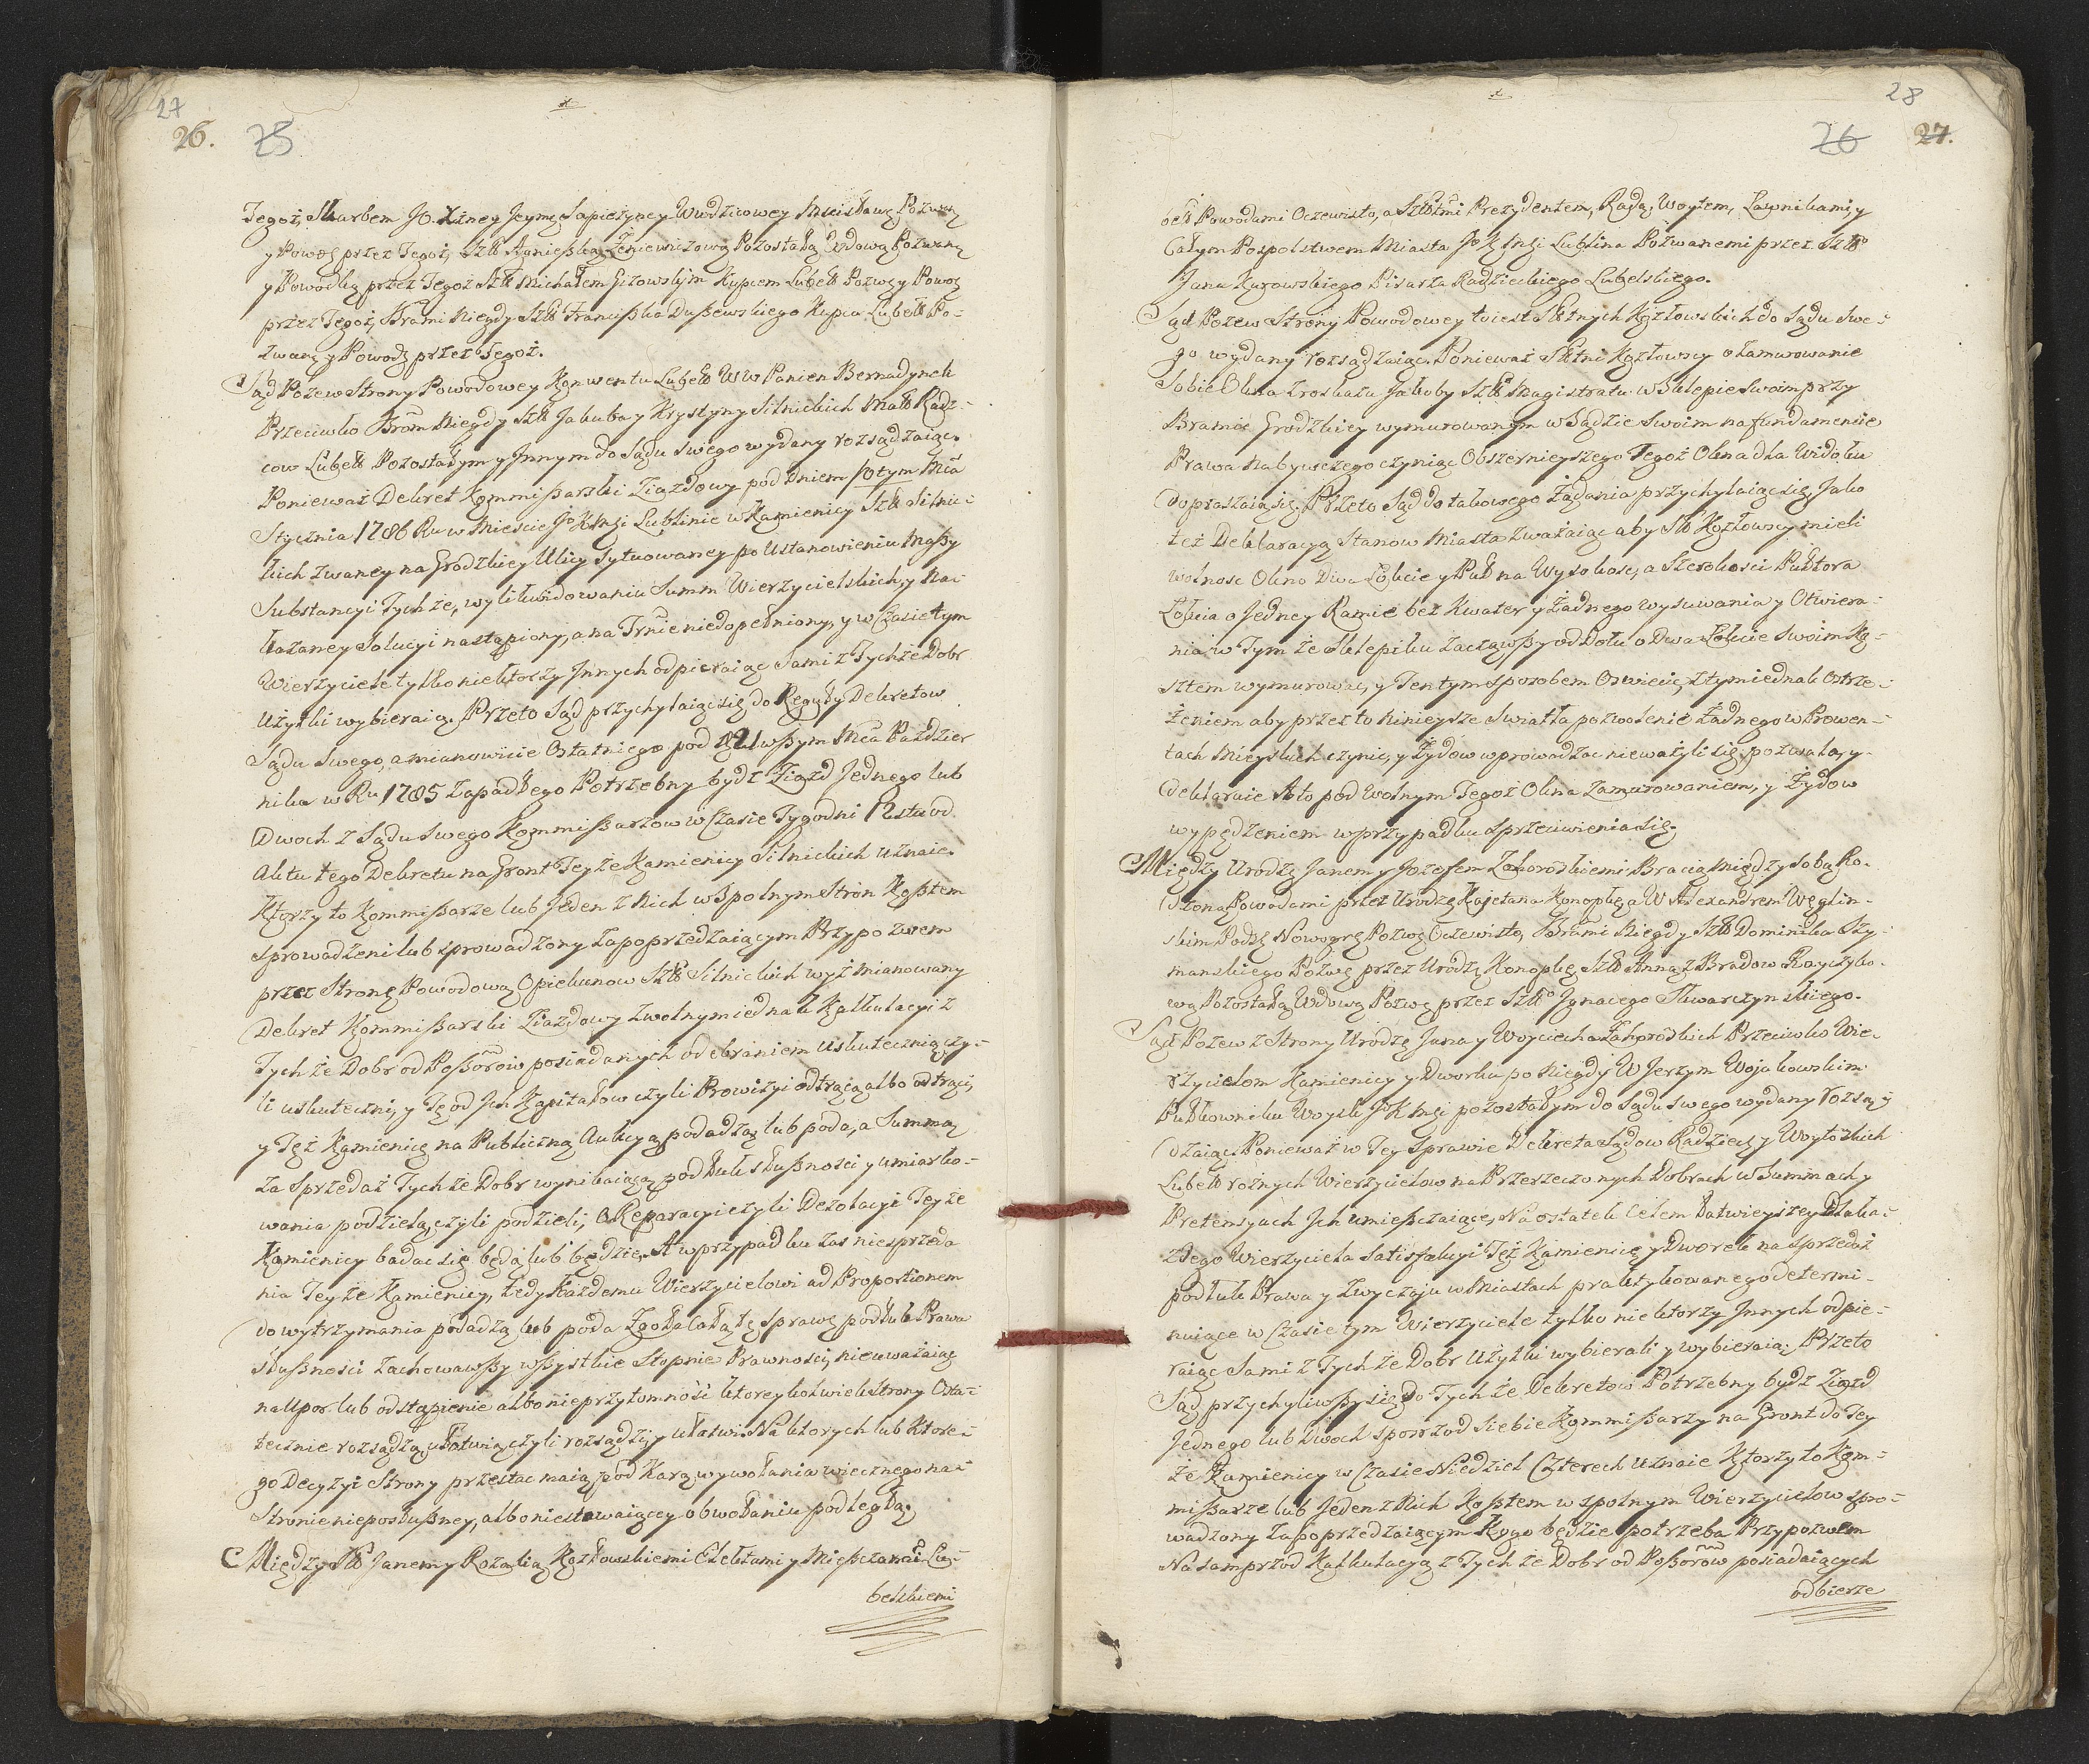 27
26. 25
Tegoż, Skarbem JO. Xiney Jeymę Sapieżyney Wwdzicowey Mscisławę, Pozwę
y Powoę przez Tegoż, Szł Agnieszką Zeniewiczową Pozostałą Wdową Pozwaną
y Powodką przez Tegoż Szł Michałem Gizowskim Kupcem Lubelł Pozwę y Powoę
przez Tegoż, Brami Niegdy Szł Franciszka Duszewskiego Kupca Lubelł Po-
zwanę y Powodę przez Tegoż.
Sąd Pozew Strony Powodowey Konwentu Lubelł WW Panien Bernadynek
Przeciwko Brom Niegdy Szł Jakuba y Krystyny Silnickich Małł Radz-
cow Lubelł Pozostałym y Innym do Sądu swego wydany rozsądzaiąc.
Ponieważ Dekret Kommissarski Ziazdowy pod Dniem 10tym Mca
Stycznia 1786 Ru w Mieście JoKMci Lublinie w Kamienicy Szł Silnic-
kich zwaney na Grodzkiey Ulicy sytuowaney po Ustanowieniu Massy
Substancyi Tychże, wylikwidowaniu Summ Wierzycielskich, y Na-
kazaney Solucyi nastąpiony, a na Trnie niedopełniony, y w Czasie tym
Wierzyciele tylko niektorzy Innych odpieraiąc Sami z Tychże Dobr
Użytki wybieraią. Przeto Sąd przychylaiąc się do Reguły Dekretow
Sądu Swego, a mianowicie Ostatniego pod 21wszym Mca Paździer
nika w Ru 1785 zapadłego Potrzebny bydź Ziazd Jednego lub
Dwoch z Sądu Swego Kommissarzow w Czasie Tygodni 12stu od
Aktu tego Dekretu na Gront Teyże Kamienicy Silnickich uznaie.
Ktorzy to Kommissarze lub Jeden z Nich wspolnym Stron Kosztem
sprowadzeni lub sprowadzony zapoprzedzaiącym Przypozwem
przez Stronę Powodową Opiekunow Szł Silnickich wyż mianowany
Dekret Kommissarski Ziazdowy zwolnym iednak Kalkulacyi z
Tychże Dobr od Possorow posiadanych odebraniem uskutecznią czy-
li uskuteczni, y Tę od Ich Kapitałow czyli Prowizyi odtrącą albo odtrąci,
y Też Kamienicę na Publiczną Aukcyą podadzą lub poda, a Summę
za sprzedaż Tychże Dobr wynikaiącą podług słuszności y umiarko-
wania podzielą, czyli podzieli, o Reparacyi czyli Dezolacyi Teyże
Kamienicy badac się będą lub będzie. A w przypadku zas niesprzeda
nia Teyże Kamienicy, tedy Każdemu Wierzycielowi ad Proportionem
do wytrzymania podadzą lub poda Zgoła całą tę Sprawę podług Prawa
słuszności zachowawszy wszystkie Stopnie Prawności, nieuważaiąc
na Upor lub odstąpienie albo nieprzytomność ktorey kolwiek Strony Osta-
tecznie rozsądzą, ułatwią, czyli rozsądzi, y ułatwi. Na ktorych lub Ktore-
go Decyzyi Strony przestac maią, pod Karą wywołania wiecznego na-
Stronie nieposłuszney, albo niestawaiącey obwołaniu podległą.
Między Sł Janem y Rozalią Kozłowskiemi Czełżami y Mieszczanai Lu-
belskiemi
28
26 27.
oelł Powodami Oczewisto, a Szłtmi Prezydentem, Radą, Woytem, Ławnikami, y
Całym Pospolstwem Miasta JoKMci Lublina Pozwanemi przez Szłgo
Jana Kurowskiego Pisarza Radzieckiego Lubelskiego.
Sąd Pozew Strony Powodowey to iest Słtnych Kozłowskich do Sądu Swe-
go wydany rozsądzaiąc. Ponieważ Słtni Kozłowscy o zamurowanie
Sobie Okna z rozkazu Jakoby Szłgo Magistratu w Sklepie Swoim przy
Bramie Grodzkiey wymurowanym w Sądzie Swoim na fundamencie
Prawa Nabywczego czyniąc Obszernieyszego Tegoż Okna dla Widoku
dopraszaią się. Przeto Sąd do takowego Żądania przychylaiąc się, Jako
też Deklaracyą Stanow Miasta zważaiąc aby Sł Kozłowscy mieli
wolnosc Okno Dwa Łokcie y Puł na Wysokosc, a Szerokosci Pułtora
Łokcia o Jedney Ramie bez Kwater y Żadnego wysuwania y Otwiera-
nia w Tymże Sklepiku zacząwszy od Dołu o Dwa Łokcie Swoim Ko-
sztem wymurować, y Tentym sposobem Oswiecić, z tym iednak Ostrze-
żeniem aby przez to Ninieysze Swiatła pozwolenie Żadnego w Prowen-
tach Mieyskich czynić, y Żydow wprowadzac nieważyli się pozwala, y
deklaruie A to pod wolnym Tegoż Okna zamurowaniem, y Żydow
wypędzeniem w przypadku sprzeciwienia się.
Między Urodzę Janem y Jozefem Zahorodskiemi Bracią między sobą Ro-
dzoną Powodami przez Urodzę Kajetana Konopkę a W Alexandrem Węglin-
skim Podsę Nowogrę Pozwę Oczewisto, Brami Niegdy Szł Dominika Szy-
manskiego Pozwę przez Urodzę Konopkę Szł Anną z Bradow Rayczyko-
wą Pozostałą Wdową Pozwę przez Szłgo Ignacego Skwarczynskiego.
Sąd Pozew z Strony Urodzę Jana y Woyciecha Zahorodskich Przeciwko Wie-
rzycielom Kamienicy y Dworku po Niegdy W Jerzym Wojakowskim
Pułkowniku Woysk JoKMci pozostałym do Sądu swego wydany rozsą-
dzaiąc. Ponieważ w Tey Sprawie Dekreta Sądow Radziec y Woytowskich
Lubelł rożnych Wierzycielow na Przerzeczonych Dobrach w Summach y
Pretensyach Ich umieszczaiące, Na ostatek Celem Łatwieyszey Dla ka-
żdego Wierzyciela Satisfakcyi Też Kamienicę y Dworek na sprzedaż
podług Prawa y Zwyczaju w Miastach praktykowanego determi-
nuiące w Czasie tym Wierzyciele tylko niektorzy Innych odpie-
raiąc Sami z Tychże Dobr Użytki wybierali y wybieraią. Przeto
Sąd przychyliwszy się do Tychże Dekretow Potrzebny bydź Ziazd
Jednego lub Dwoch sposrzod Siebie Kommissarzy na Gront do Tey
że Kamienicy w Czasie Niedziel Czterech Uznaie Ktorzy to Kom-
missarze lub Jeden z Nich Kosztem wspolnym Wierzycielow spro-
wadzony zapoprzedzaiącym Kogo będzie potrzeba Przypozwem
Nasamprzod Kalkulacyą z Tychże Dobr od Possorow posiadaiących
odbierze